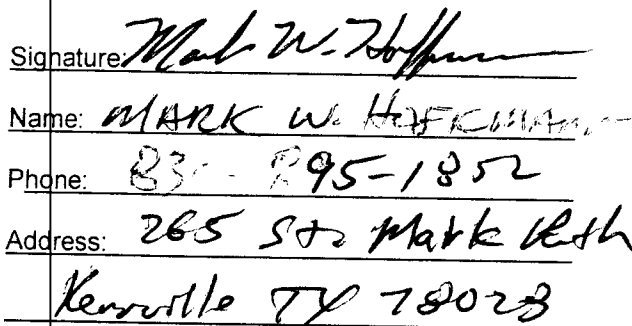 Signature: Mark W. Hoffmann
Name: MARK W. HOFFMANN
Phone: 830-895-1852
Address: 265 St. Mark Path
Kerrville TX 78028